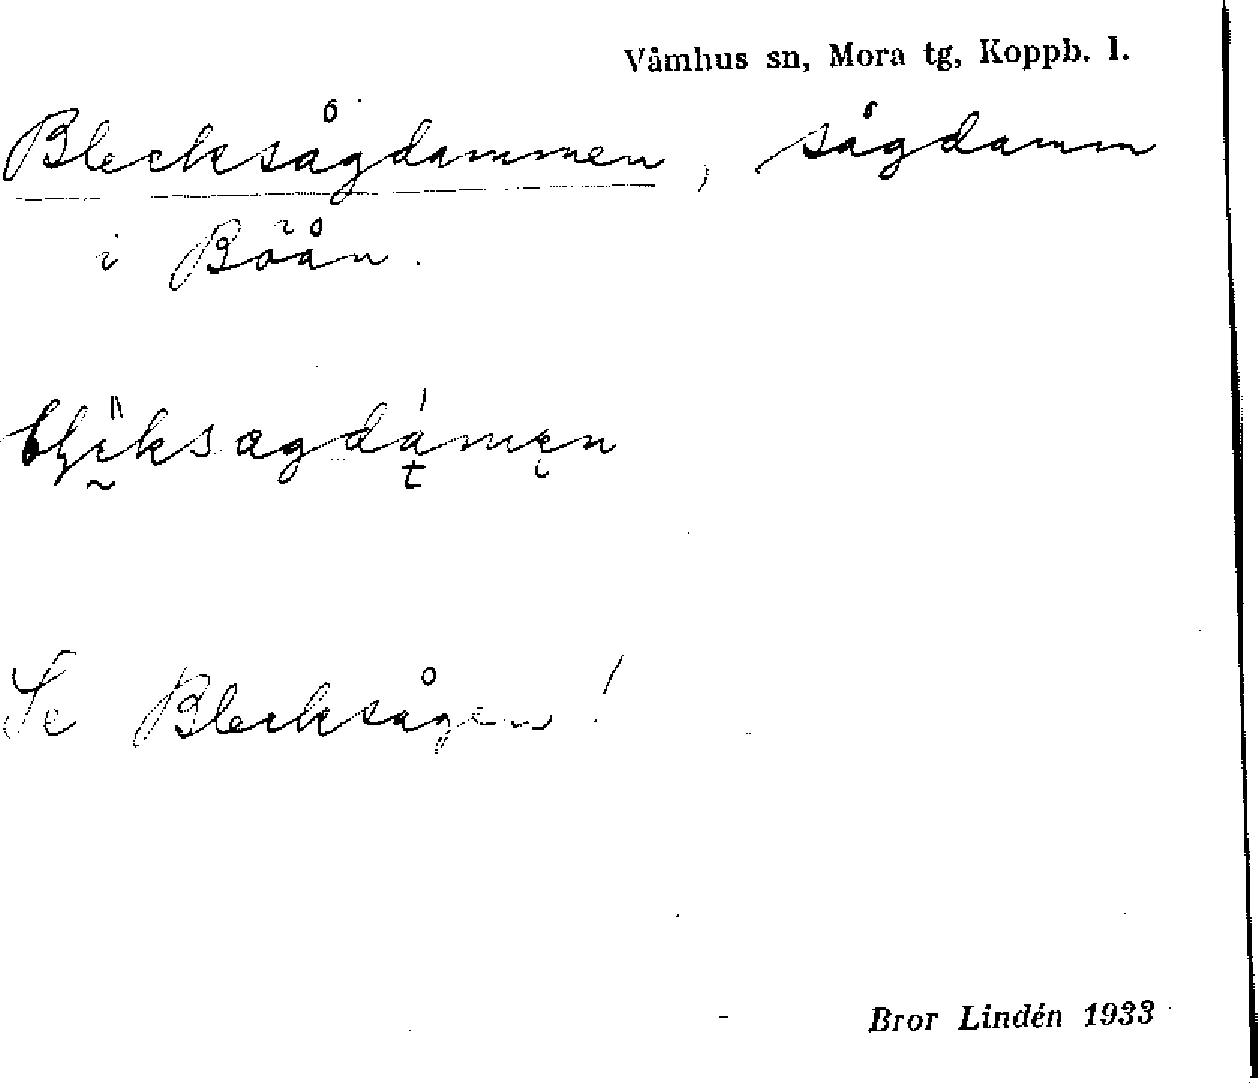 Våmhus sn, Mora tg, Koppb. l.
Blecksågdammen, sågdamm
i Böån.
Se Blecksågen!
Bror Lindén 1933